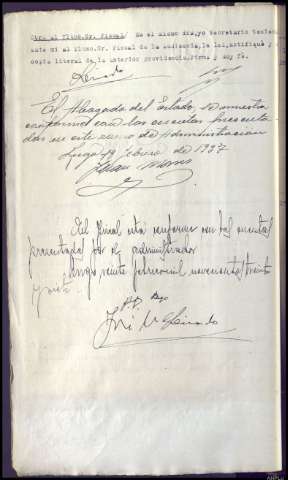 Otra al Ilmo.Sr. Fiscal/ En el mismo día,yo Secretario teniendo
ante mi al Ilmo.Sr. Fiscal de la Audiencia,le leí,notifiqué y
copia literal de la anterior providencia,firma y doy fe.
El Abogado del Estado se muestra
conforme con las cuentas presenta-
das en este ramo de administración
Lugo 19 febrero de 1937
El Fiscal está conforme con las cuentas
presentadas por el administrador
Lugo veinte febrero mil novecientos treinta
y siete